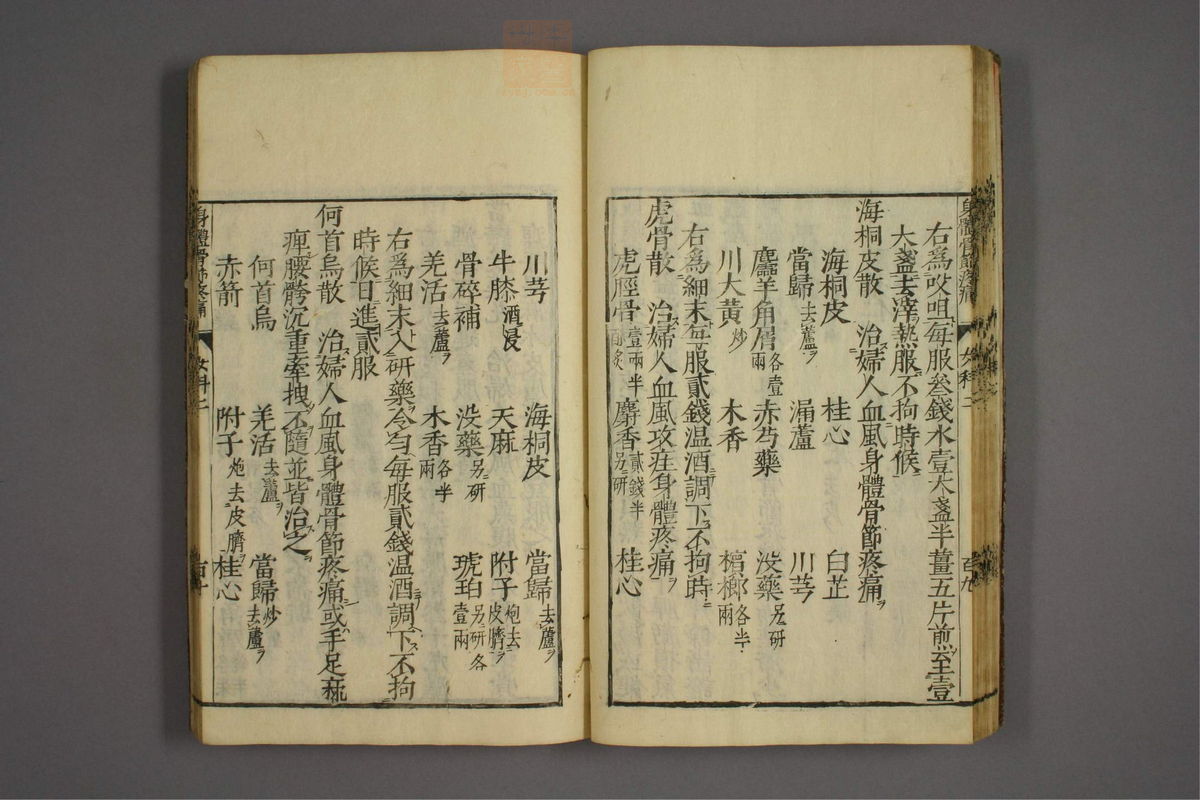 右爲㕮咀每服叁錢水壹大盞半薑五片煎至壹
大盞去滓熱服不拘時候
海桐皮散　治婦人血風身體骨節疼痛
海桐皮　桂心　白芷
當歸去蘆　漏蘆　川芎
麢羊角屑各壹兩　赤芍藥　没藥另研
川大黄炒　木香　檳榔各半兩
右爲細末每服貳錢温酒調下不拘時
虎骨散　治婦人血風攻疰身體疼痛
虎脛骨壹兩半酥炙　麝香貳錢半另研　桂心
川芎　海桐皮　當歸去蘆
牛膝酒浸　天麻　附子炮去皮臍
骨碎補　没藥另研　琥珀另研各壹兩
羌活去蘆　木香各半兩
右爲細末入研藥令匀每服貳錢温酒調下不拘
時候日進貳服
何首烏散　治婦人血風身體骨節疼痛或手足痲
痺腰胯沉重牽拽不隨並皆治之
何首烏　羌活去蘆　當歸炒去蘆
赤箭　附子炮去皮臍　桂心
身體骨節疼痛　女科二　百十